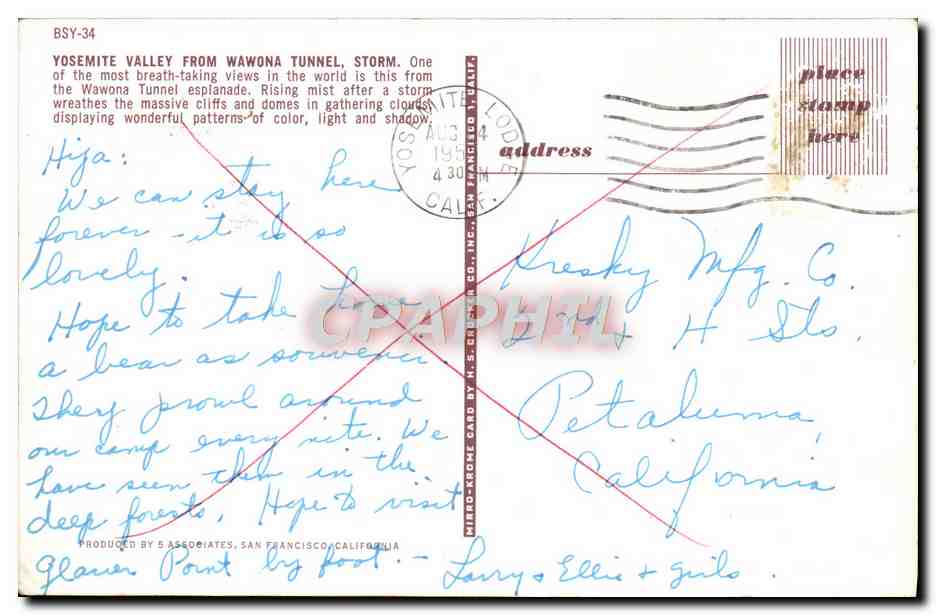 BSY-34
YOSEMITE VALLEY FROM WAWONA TUNNEL, STORM. One
of the most breath-taking views in the world is this from
the Wawona Tunnel esplanade. Rising mist after a storm
wreathes the massive cliffs and domes in gathering clouds
displaying wonderful patterns of color, light and shadow.
Hija:
We can stay here
forever - it is so
lovely.
Hope to take home
a bear as souvenir
They prowl around
our camp every nite. We
have seen them in the
deep forests. Hope to visit
PRODUCED BY 5 ASSOCIATES, SAN FRANCISCO, CALIFORNIA
Glacier Point by foot. -
Larry & Ellie & girls.
MIRRO-KROME CARD BY H. S. CROCKER CO., INC., SAN FRANCISCO 1, CALIF.
YOSEMITE LODGE
AUG 4
195
4 30 PM
CALIF.
place
stamp
here
address
Kresky Mfg. Co.
2nd & H Sts.
Petaluma,
California
CPAPHIL